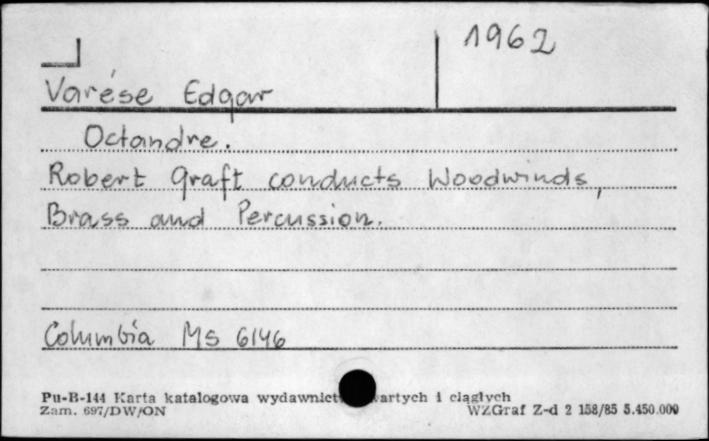 1962
Varése Edgar
Octandre.
Robert Graft conducts Woodwinds,
Brass and Percussion.
Columbia Ms 6146
Pu-B-144 Karta katalogowa i ciągłych
Zam. 697/DW/ON WZGraf Z-d 2 158/85 5.450.000